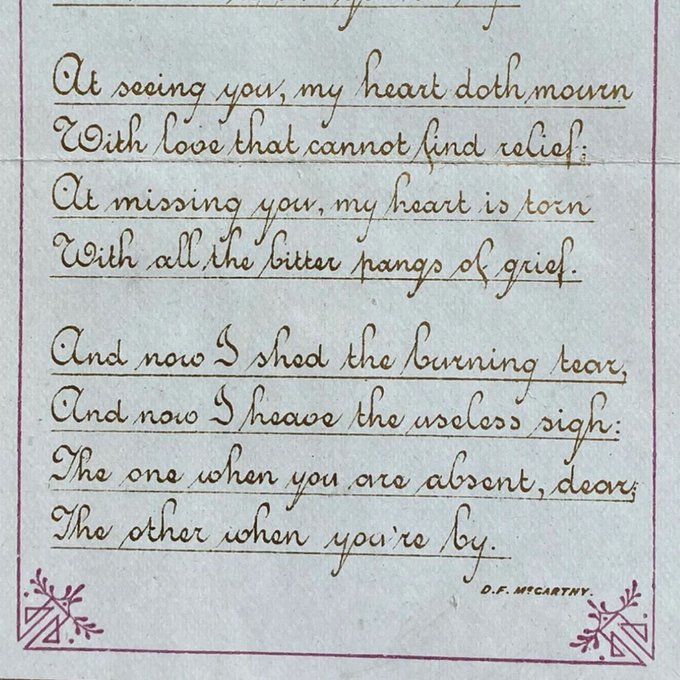 At seeing you, my heart doth mourn
With love that cannot find relief;
At missing you, my heart is torn
With all the bitter pangs of grief.
And now I shed the burning tear,
And now I heave the useless sigh:
The one when you are absent, dear;
The other when you're by.
D.F. McCARTHY.